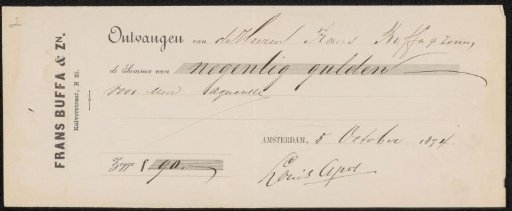 2
FRANS BUFFA & ZN.
Kalverstraat, E 21.
Ontvangen van de Heeren Frans Buffa & Zoon,
de Somma van negentig gulden
voor een aquarelle
AMSTERDAM, 8 October 1874.
Zegge f 90.—
Louis Apol